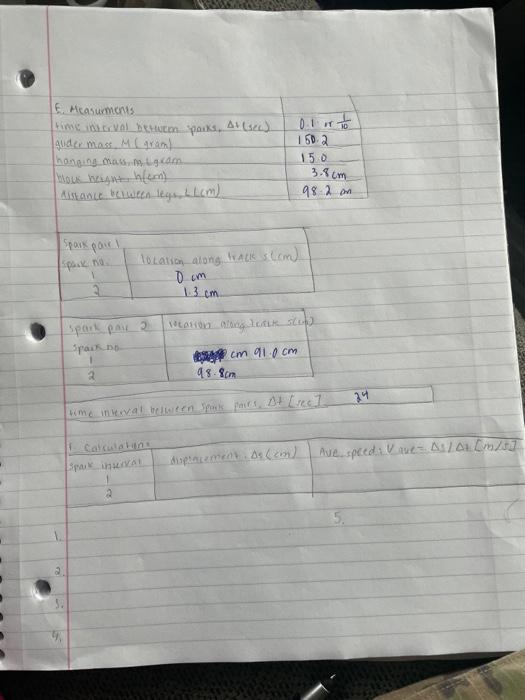 E. Measurments
time interval between sparks, Δt (sec) 0.1 or 1/10
glider mass, M (gram) 150.2
hanging mass, m, (gram 15.0
block height, h(cm) 3.8 cm
distance between legs, L (cm) 98.2 cm
Spark pair 1
spark no. location along track s(cm)
1 0 cm
2 1.3 cm
spark pair 2 location along track s(cm)
Spark no
1 cm 91.0 cm
2 98.8cm
time interval between spark pairs, Δt [sec] 24
F. Calculations
Spark interval displacement, Δs (cm) Ave. speed: V ave = Δs/Δt [m/s]
1
2
5.
1.
2.
3.
4.